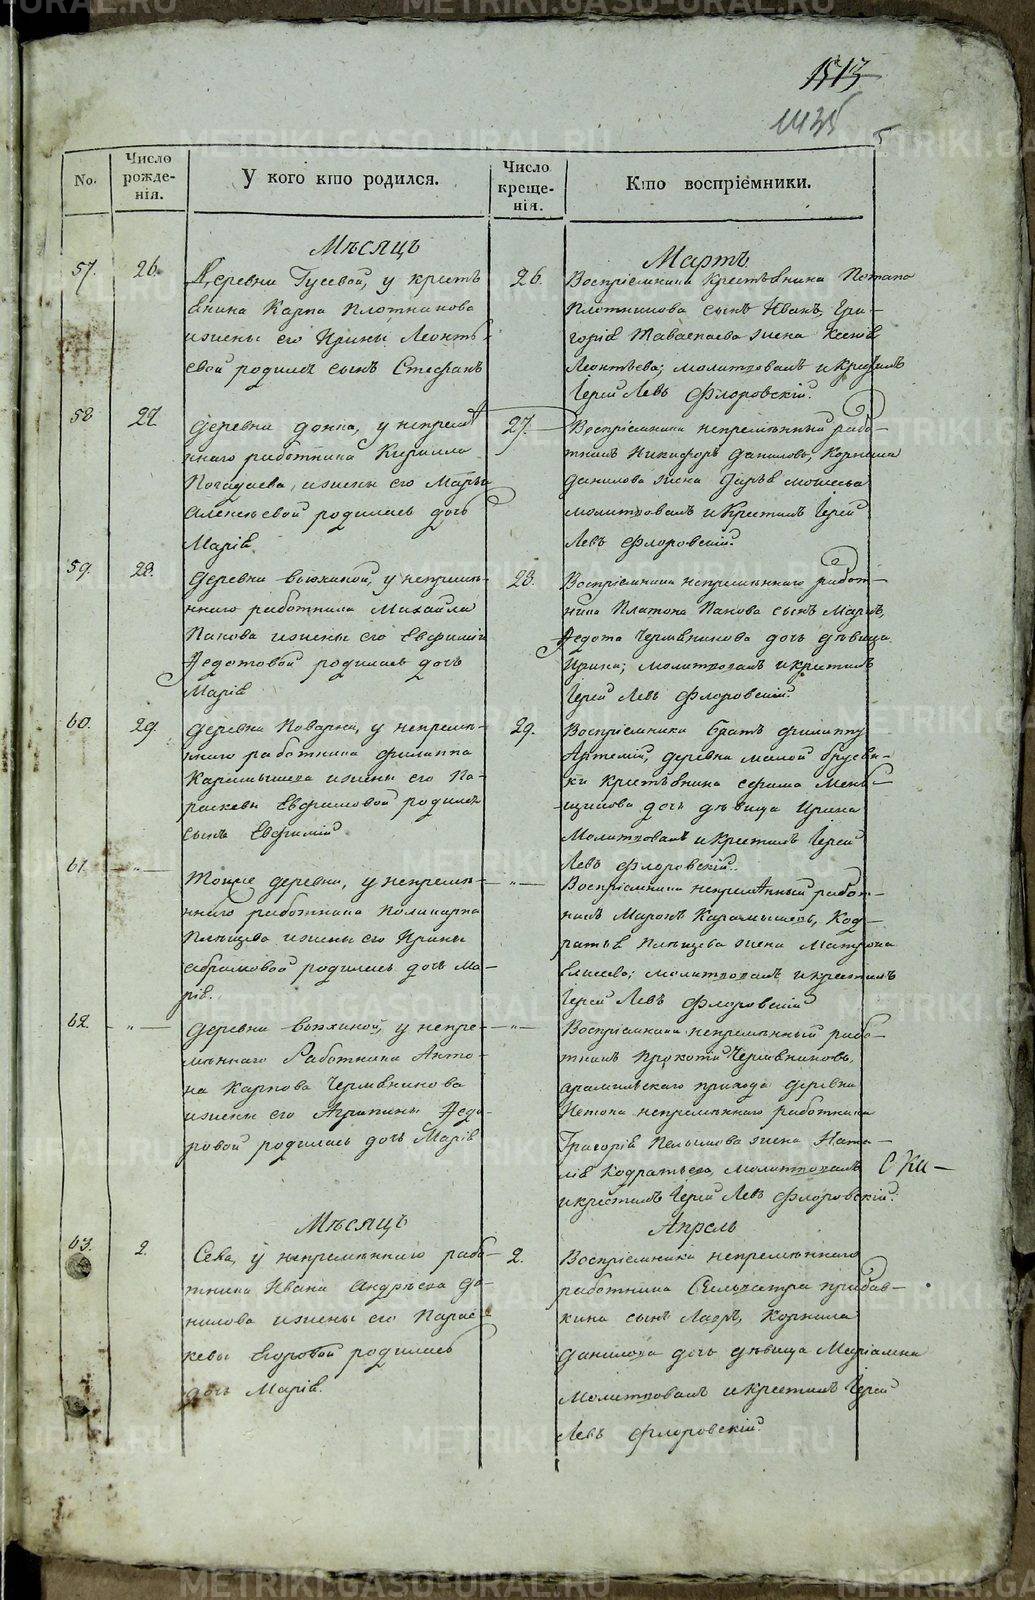 1513
1135
5
No.
Число рожде-нія.
У кого кто родился.
Число креще-нія.
Кто воспріемники.
Мѣсяцъ
Мартъ
57.
26.
Деревни Гусевой, у кресть
янина Карпа Плотникова
изжены его Ирины Леонть
евой родился сынъ Стефанъ
26.
Воспріемники крестьянина Потапа
Плотникова сынъ Иванъ, Гри-
горія жена Ксенія
Леонтьева; молитвовалъ и крестилъ
Іерей Левъ Флоровскій.
58
27.
деревни донка, у непремѣ
ннаго работника Кирилла
Погадаева, изжены его Марѳы
Алексѣевой родилась дочь
Марія
27.
Воспріемники непремѣнный рабо-
тникъ Никифоръ Даниловъ, Корнила
Данилова жена Дарья
молитвовалъ и крестилъ Іерей
Левъ Флоровскій.
59.
28.
деревни вьюхиной, у непремѣ-
ннаго работника Михайла
Панова изжены его Евфиміи
Федотовой родилась дочь
Марія
28.
Воспріемники непремѣннаго работ-
ника Платона Панова сынъ Маркъ,
Федота Чермяникова дочь дѣвица
Ирина; молитвовалъ и крестилъ
Іерей Левъ Флоровскій.
60.
29.
деревни Поварни, у непремѣ-
ннаго работника Филиппа
Карамышева изжены его Па-
раскевы Евфимовой родился
сынъ Евфимій
29.
Воспріемники братъ Филиппу
Артемій, деревни малой брусян-
ки крестьянина Мень-
щикова дочь дѣвица Ирина
Молитвовалъ и крестилъ Іерей
Левъ Флоровскій.
61.
— „ —
Тойже деревни, у непремѣ-
ннаго работника Поликарпа
Плѣщева изжены его Ирины
абрамовой родилась дочь Ма-
рія.
— „ —
Воспріемники непремѣнный работ-
никъ Маронъ Карамышевъ, Код-
ратья Плѣщева жена Матрона
власова; молитвовалъ и крестилъ
Іерей Левъ Флоровскій
62.
— „ —
деревни вьюхиной, у непре-
мѣннаго Работника Анто-
на Карпова Чермяникова
изжены его Агрипины Федо-
ровой родилась дочь Марія
— „ —
Воспріемники непремѣнный рабо-
тникъ Прокопій Чермяниковъ,
арамильскаго прихода деревни
непремѣннаго работника
Григорія жена Ната-
лія Кодратьева, молитвовалъ
и крестилъ Іерей Левъ Флоровскій.
Ски-
Мѣсяцъ
Апрель
63.
2.
Села, у непремѣннаго рабо-
тника Ивана Андрѣева Да-
нилова изжены его Парас-
кевы Егоровой родилась
дочь Марія.
2.
Воспріемники непремѣннаго
работника Сильвестра прибав-
кина сынъ Лавръ, Корнила
Данилова дочь дѣвица Маріамна
Молитвовалъ и крестилъ Іерей
Левъ Флоровскій.
METRIKI.GASO-URAL.RU